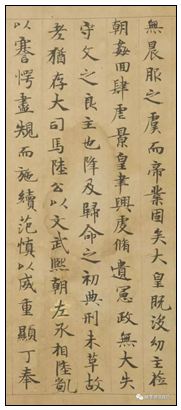 無晨服之虞而帝業固矣大皇既沒幼主莅
朝姦回肆虐景皇聿興虔脩遺憲政無大失
守文之良主也降及歸命之初典刑未草故
老猶存大司馬陸公以文武熙朝左丞相陸凱
以謇愕盡規而施績范慎以威重顯丁奉